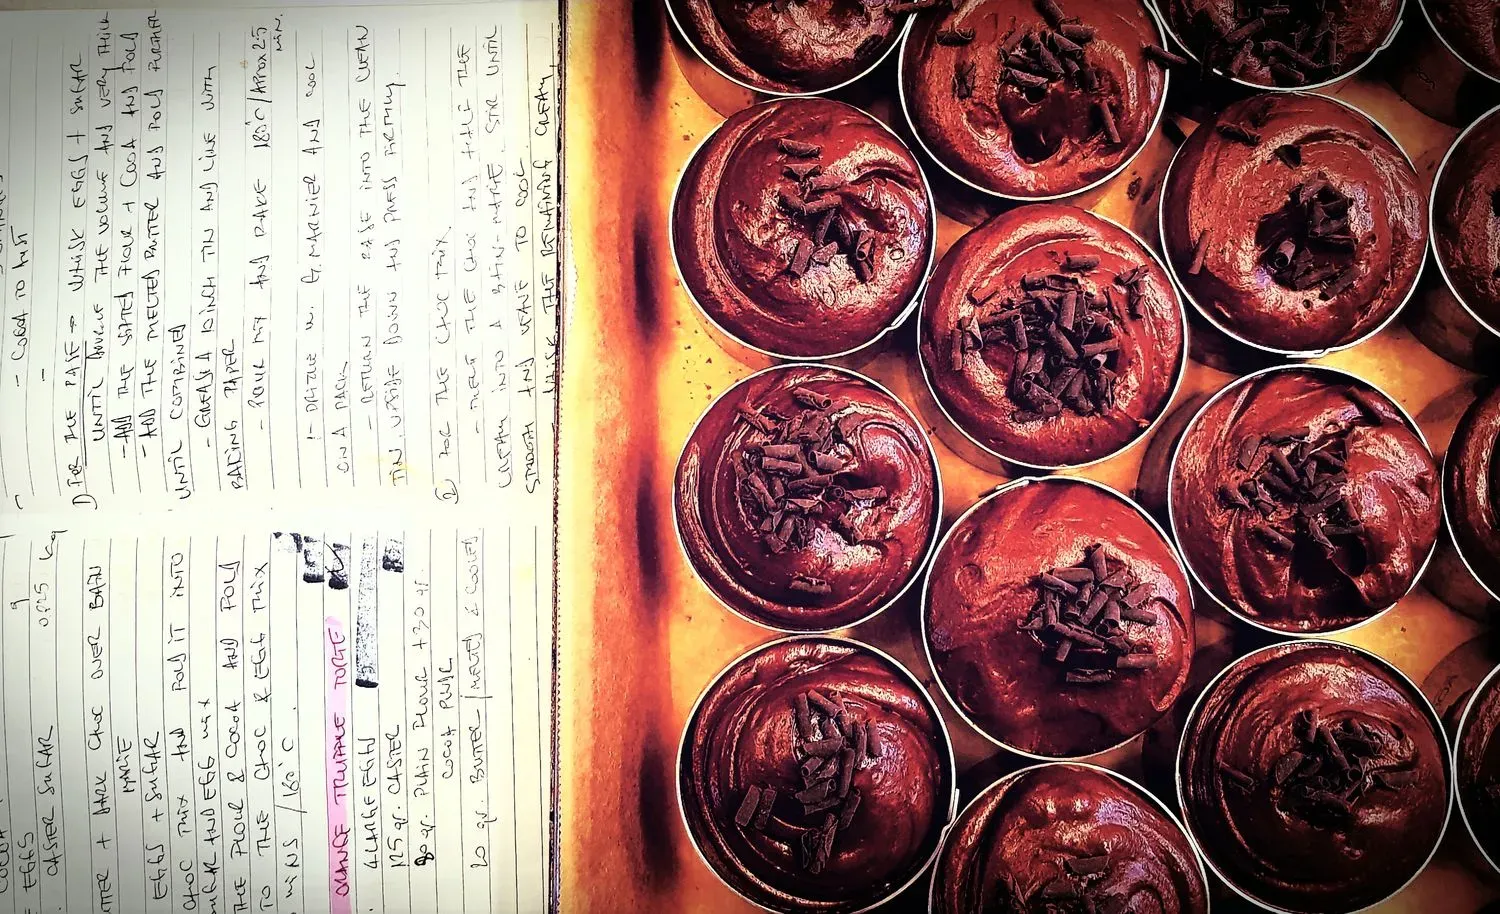 EGGS
CASTER SUGAR
+ DARK CHOC OVER BAIN
MARIE
EGGS + SUGAR
CHOC MIX AND FOLD IT INTO
SUGAR AND EGG MIX
THE FLOUR & COCOA AND FOLD
TO THE CHOC & EGG MIX
MINS / 180°C.
ORANGE TRUFFLE TORTE
4 LARGE EGGS
125 gr. CASTER
90 gr. PLAIN FLOUR + 30 gr.
COCOA PWDR
20 gr. BUTTER / MELTED & COOLED
- COCOA TO DUST
-
1) FOR THE BASE → WHISK EGGS + SUGAR
UNTIL DOUBLE THE VOLUME AND VERY THICK
- ADD THE SIFTED FLOUR + COCOA AND FOLD
- ADD THE MELTED BUTTER AND FOLD FURTHER
UNTIL COMBINED
- GREASE A 10INCH TIN AND LINE WITH
BAKING PAPER
- POUR MIX AND BAKE 180°C / APROX 25 MIN.
!- DRIZZLE W. G. MARNIER AND COOL
ON A RACK
- RETURN THE BASE INTO THE CLEAN
TIN, UPSIDE DOWN AND PRESS FIRMLY.
2) FOR THE CHOC MIX
- MELT THE CHOC AND HALF THE
CREAM INTO A BAIN-MARIE. STIR UNTIL
SMOOTH AND LEAVE TO COOL
- WHISK THE REMAINING CREAM,